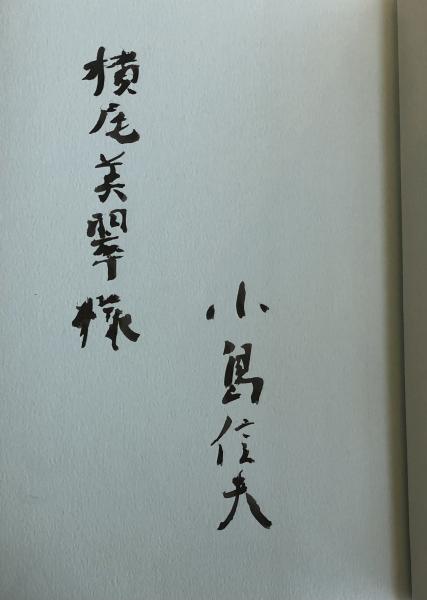 横尾美翠様
小島信夫